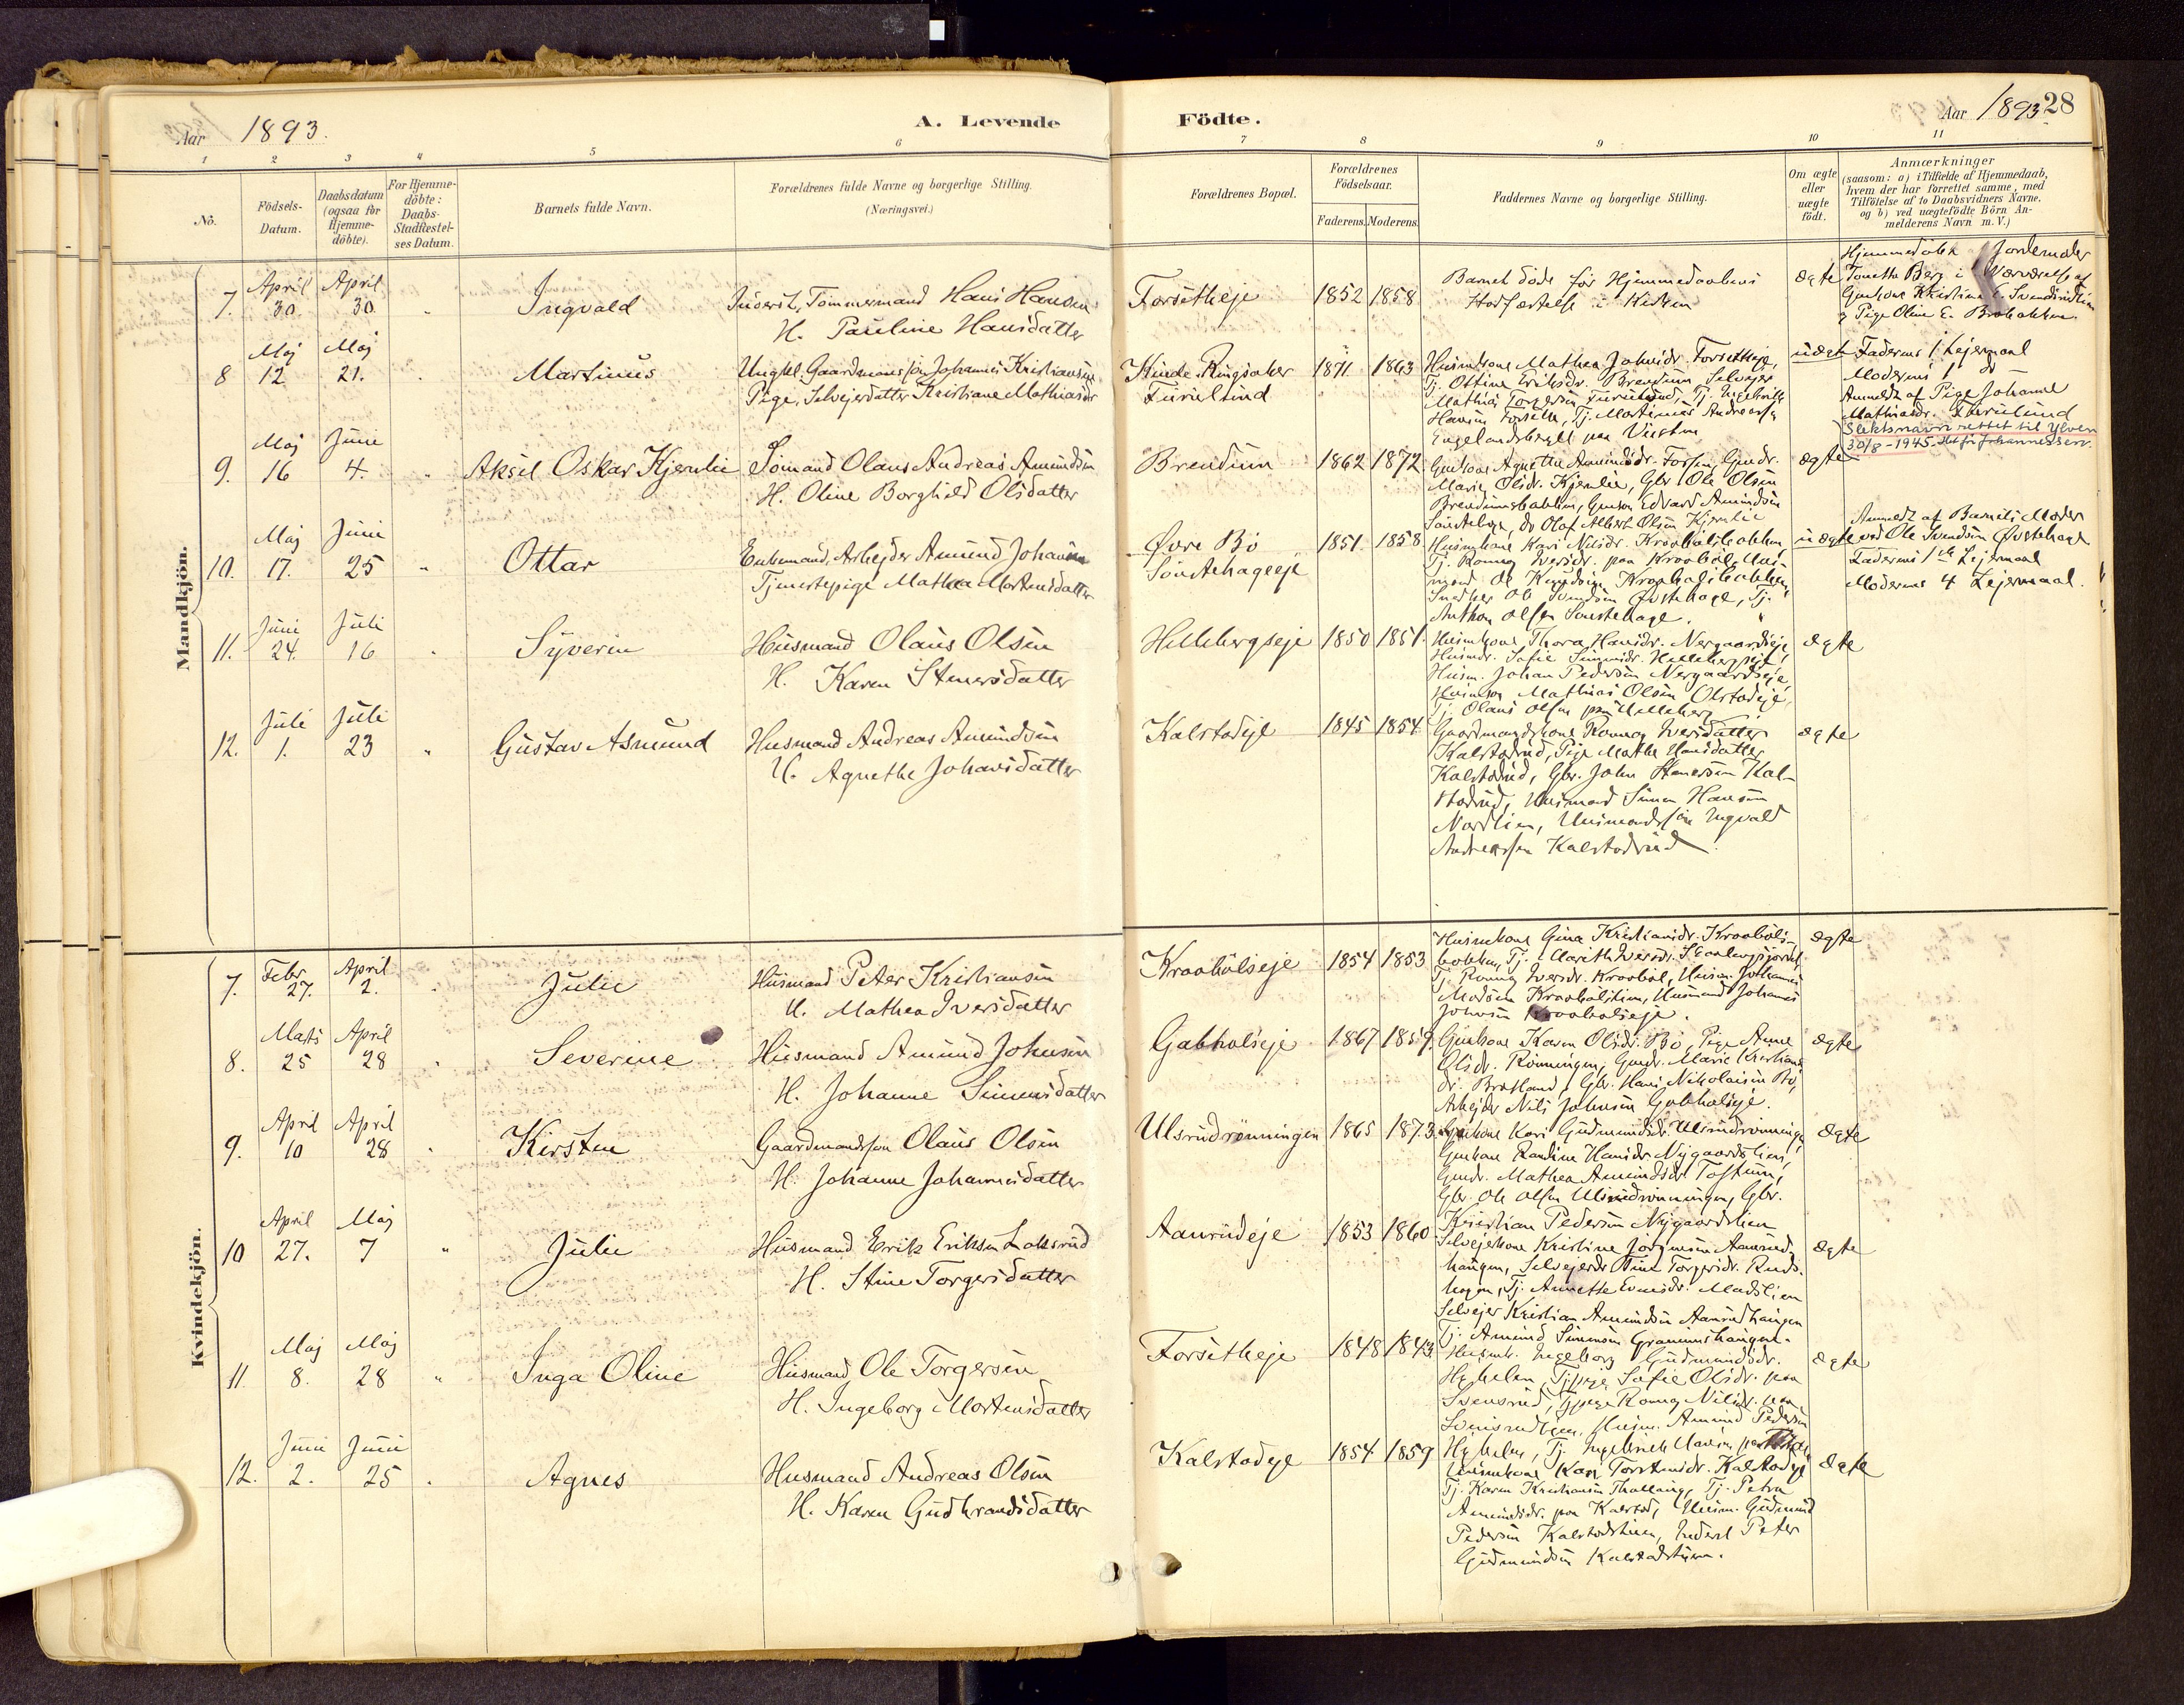 Aar 1893.
A. Levende
Födte.
Aar 1893
28
1 2 3 4 5 6 7 8 9 10 11
No.
Födsels-
Datum.
Daabsdatum
(ogsaa for
Hjemme-
döbte).
For Hjemme-
döbte:
Daabs-
Stadfæstel-
ses Datum.
Barnets fulde Navn.
Forældrenes fulde Navne og borgerlige Stilling.
(Næringsvei.)
Forældrenes Bopæl.
Forældrenes
Födselsaar.
Faderens. Moderens.
Faddernes Navne og borgerlige Stilling.
Om ægte
eller
uægte
födt.
Anmærkninger
(saasom: a) i Tilfælde af Hjemmedaab,
hvem der har forrettet samme, med
Tilföielse af to Daabsvidners Navne,
og b) ved uægtefödte Börn An-
melderens Navn m. V.)
Mandkjön.
April April
7. 30. 30. Ingvald
Inderst, Tömmermand Hans Hansen
H. Pauline Hansdatter
Forsetheje 1852 1858
Barnet döde för Hjemmedaabens
Stadfæstelse i Kirken
ægte
Hjemmedöbt Jordemoder
Tonetta Berg i Nærværelse af
og Pige Oline E. Brobakken.
Maj Maj
8 12 21. Martinus
Ungkl. Gaardmandssön Johannes Kristiansen
Pige, Selvejerdatter Kristiane Mathiasdr
Kinde Ringsaker
Furulund
1871 1863
Husmkone Mathea Johnsdr. Forsetheje,
Tj. Ottine Eriksdr. Brendum, Selvejer
Mathias Torgersen Furulund, Tj. Ingebrikt
Hansen Forseth, Tj. Martinus Andreassen
uægte
Faderens 1 Lejermaal
Moderens 1 do
Anmeldt af Pige Johanne
Mathiasdr. Furulund
Slektsnavn rettet til Ylven
30/8-1945.
Maj Juni
9. 16 4. Aksel Oskar Kjernlie
Sömand Olaus Andreas Amundsen
H. Oline Borghild Olsdatter
Brendum 1862 1872
Gmkone Agnethe Amundsdr. Forsen, Gmdr.
Marie Olsdr. Kjernlie, Gbr Ole Olsen
Brendumsbakken, Gmsön Edvard Amundsen
Sönsteby, do Olaf Albert Olsen Kjernlie
ægte
Maj Juni
10. 17. 25 Ottar
Enkemand, Arbejder Amund Johansen
Tjenestepige Mathea Mortensdatter
Övre Bö
Sönstehageeje
1851 1858
Husmkone Kari Nilsdr. Kraabölsbakken
Tj. Ronnog Iversdr. paa Kraaböl, Hus-
mand Ole Knudsen Kraabölsbakken,
Snedker Ole Svendsen Östehage, Tj.
Anthon Olsen Sönstehage.
uægte
Anmeldt af Barnets Moder
ved Ole Svendsen Östehage
Faderens 1ste Lejermaal
Moderens 4 Lejermaal.
Juni Juli
11. 24. 16 Syverin
Husmand Olaus Olsen
H. Karen Stenersdatter
Hellebergseje 1850 1851
Husmkone Thora Hansdr. Nergaardseje
Husmdr. Sofie Simensdr. Hellebergseje,
Husm. Johan Pedersen Nergaardseje,
Husmsön Mathias Olsen Olstadeje,
Tj. Olaus Olsen paa Helleberg
ægte
Juli Juli
12. 1. 23 Gustav Asmund
Husmand Andreas Amundsen
H. Agnethe Johansdatter
Kalstadeje 1845 1854
Gaardmandskone Ronnog Iversdatter
Kalstadrud, Pige Mathea Hansdatter
Kalstadrud, Gbr. John Stenersen Kal-
stadrud, Husmand Simen Hansen
Nordlien, Husmandssön Ingvald
Andreassen Kalstadrud.
ægte
Kvindekjön.
Febr. April
7. 27. 2. Julie
Husmand Peter Kristiansen
H. Mathea Iversdatter
Kraabölseje 1854 1853
Husmkone Gina Kristiansdr. Kraaböls-
Tj. Ronnog Iversdr. Kraaböl, Husm. Johannes
Madsen Kraabölslien, Husmand Johannes
Johnsen Kraabölseje.
ægte
Marts April
8. 25 28 Severine
Husmand Amund Johnsen
H. Johanne Simensdatter
Gabholseje 1867 1859
Gmkone Karen Olsdr. Bö, Pige Anne
Olsdr. Rönningen, Gmdr. Marie Kristians-
dr. Bratland, Gbr. Hans Nikolaisen Bö,
Arbejder Nils Johnsen Gabholseje.
ægte
April April
9. 10 28 Kirsten
Gaardmandssön Olaus Olsen
H. Johanne Johannesdatter
Ulsrudrönningen 1865 1873
Gmkone Kari Gudmundsdr. Ulsrudrönningen,
Gmkone Randine Hansdr. Nygaardslien,
Gmdr. Mathea Amundsdr. Toftum,
Gbr. Ole Olsen Ulsrudrönningen, Gbr.
Kristian Pedersen Nygaardslien
ægte
April Maj
10 27. 7 Julie
Husmand Erik Eriksen Loksrud
H. Stine Torgersdatter
Aanrudeje 1853 1860
Selvejekone Kristine Jörgensen Aanrud-
haugen, Selvejerdr. Stine Torgersdr. Ruds-
hagen, Tj. Annette Evensdr. Madslien
Selvejer Kristian Amundsen Aanrudhaugen
Tj. Amund Simensen Gramsinshaugen.
ægte
Maj Maj
11. 8. 28 Inga Oline
Husmand Ole Torgersen
H. Ingeborg Mortensdatter
Forsetheje 1848 1843
Husmk. Ingeborg Gudmundsdr.
Tjpige Sofie Olsdr. paa
Svensrud, Tjpige Ronnog Nilsdr. paa
Husm. Amund Pedersen
ægte
Juni Juni
12. 2. 25 Agnes
Husmand Andreas Olsen
H. Karen Gudbrandsdatter
Kalstadeje 1854 1859
Husmkone Kari Torstensdr. Kalstadeje
Tj. Karen Kristiansen Thallaug, Tj. Petra
Amundsdr. paa Kalstad, Husm. Gudmund
Pedersen Kalstadstuen, Inderst Peter
Gudmundsen Kalstadstuen.
ægte